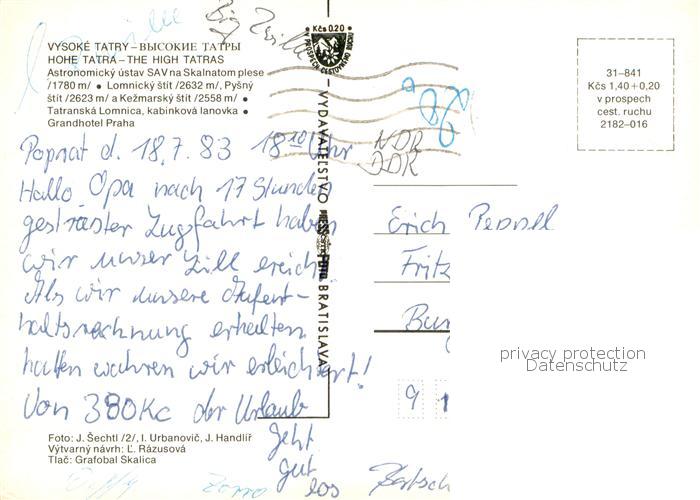 Big Zwille
VYSOKÉ TATRY – ВЫСОКИЕ ТАТРЫ
HOHE TATRA – THE HIGH TATRAS
Astronomický ústav SAV na Skalnatom plese
/1780 m/ • Lomnický štít /2632 m/, Pyšný
štít /2623 m a Kežmarský štít /2558 m/ •
Tatranská Lomnica, kabínková lanovka •
Grandhotel Praha
Kčs 0.20
V PROSPECH CESTOVNÉHO RUCHU
31–841
Kčs 1,40 + 0,20
v prospech
cest. ruchu
2182–016
Poprat d. 18.7.83 18¹⁰ Uhr
Hallo Opa nach 17 Stunden
gestraster Zugfahrt haben
wir unser Zill ereich.
Als wir unsere Aufent-
haltsrechnung erhalten
hatten wahren wir erleichtert!
Von 380Kc der Urlaub
geht
gut
los
VYDAVATEĽSTVO
BRATISLAVA
NDR
DDR
Erich
Fritz
9 1
privacy protection
Datenschutz
Foto: J. Šechtl /2/, I. Urbanovič, J. Handlíř
Výtvarný návrh: Ľ. Rázusová
Tlač: Grafobal Skalica
Zorro